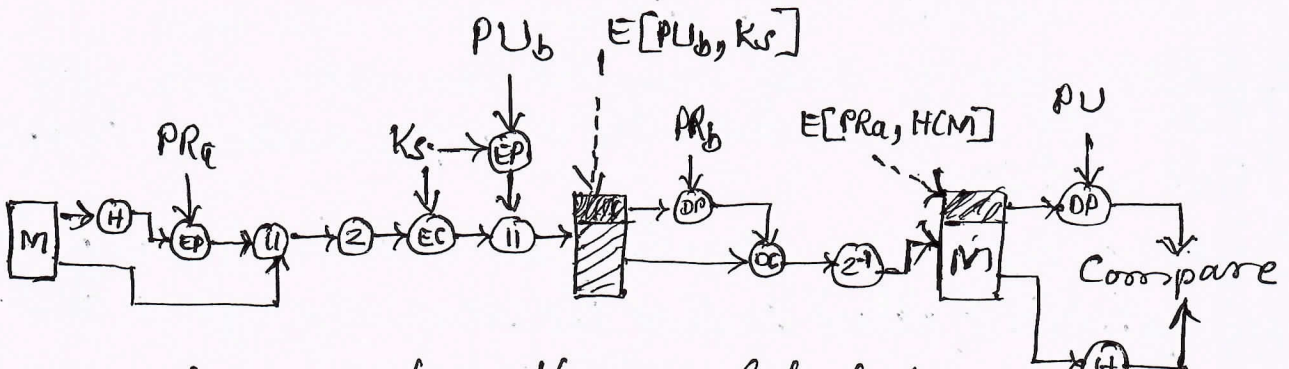 PUb E[PUb, Ks]
PRa Ks EP PRb E[PRa, H(M)] PU
M H EP || Z EC || DP DC Z⁻¹ M DP
Compare
H